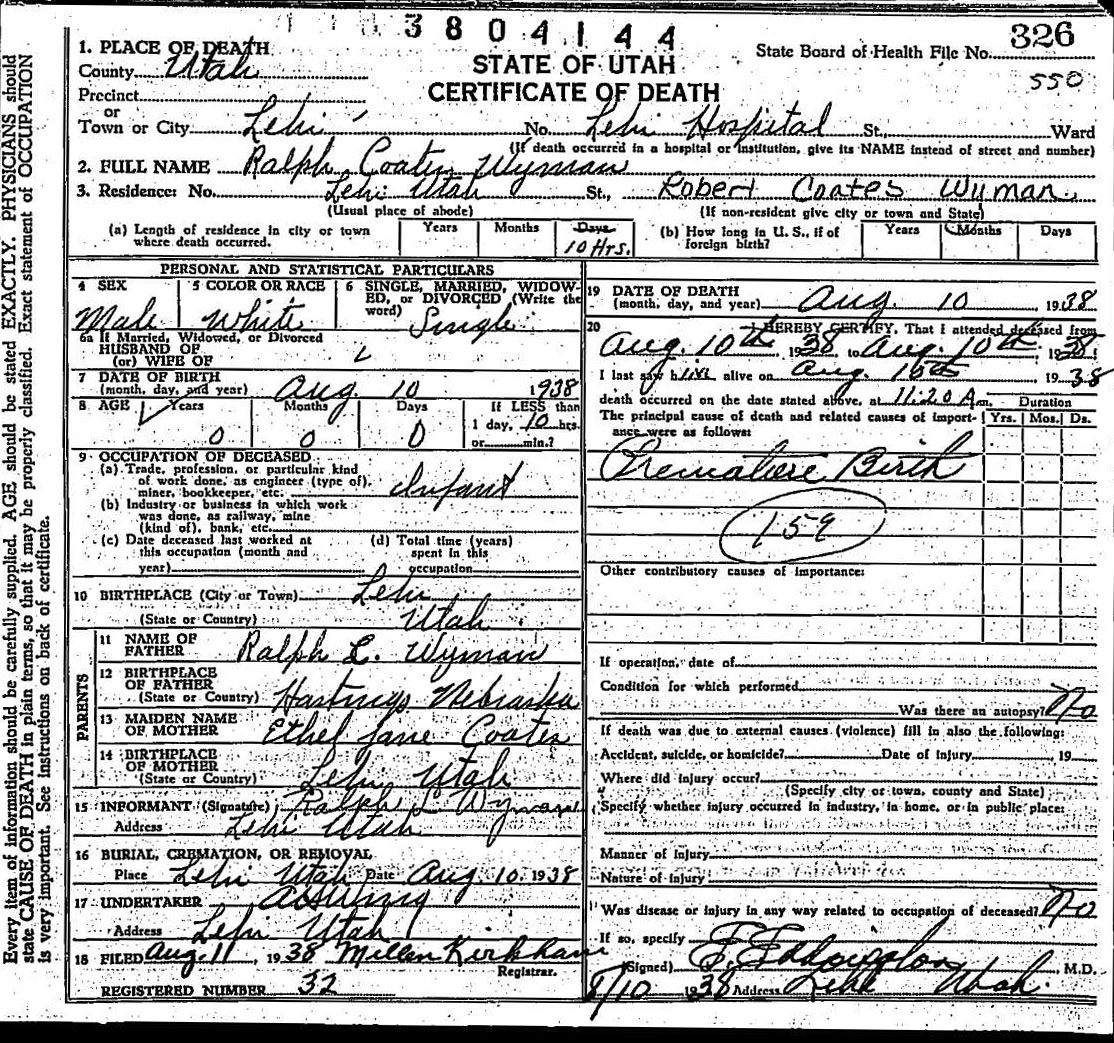 3804144
326
State Board of Health File No.
550
STATE OF UTAH
CERTIFICATE OF DEATH
1. PLACE OF DEATH
County Utah
Precinct
or
Town or City Lehi No. Lehi Hospital St., Ward
(If death occurred in a hospital or institution, give its NAME instead of street and number)
2. FULL NAME Ralph Coates Wyman
3. Residence: No. Lehi Utah St., Robert Coates Wyman
(Usual place of abode) (If non-resident give city or town and State)
(a) Length of residence in city or town where death occurred. Years Months Days 10 Hrs.
(b) How long in U. S., if of foreign birth? Years Months Days
PERSONAL AND STATISTICAL PARTICULARS
4 SEX Male
5 COLOR OR RACE White
6 SINGLE, MARRIED, WIDOWED, or DIVORCED (Write the word) Single
6a If Married, Widowed, or Divorced
HUSBAND OF
(or) WIFE OF
7 DATE OF BIRTH
(month, day, and year) Aug. 10 1938
8 AGE Years 0 Months 0 Days 0 If LESS than 1 day, 10 hrs. or min.?
9 OCCUPATION OF DECEASED
(a) Trade, profession, or particular kind
of work done, as engineer (type of),
miner, bookkeeper, etc. Infant
(b) Industry or business in which work
was done, as railway, mine
(kind of), bank, etc.
(c) Date deceased last worked at
this occupation (month and
year)
(d) Total time (years)
spent in this
occupation
10 BIRTHPLACE (City or Town) Lehi
(State or Country) Utah
PARENTS
11 NAME OF FATHER Ralph L. Wyman
12 BIRTHPLACE OF FATHER
(State or Country) Hastings Nebraska
13 MAIDEN NAME OF MOTHER Ethel Jane Coates
14 BIRTHPLACE OF MOTHER
(State or Country) Lehi Utah
15 INFORMANT (Signature) Ralph L Wyman
Address Lehi Utah
16 BURIAL, CREMATION, OR REMOVAL
Place Lehi Utah Date Aug. 10. 1938
17 UNDERTAKER
Address Lehi Utah
18 FILED Aug. 11, 1938 Millen Kirkham
Registrar.
REGISTERED NUMBER 32
19 DATE OF DEATH
(month, day, and year) Aug. 10 1938
20 I HEREBY CERTIFY, That I attended deceased from
Aug. 10th 1938 to Aug. 10th 1938
I last saw him alive on Aug. 10th 1938
death occurred on the date stated above, at 11:20 A m. Duration
The principal cause of death and related causes of importance were as follows: Yrs. Mos. Ds.
Premature Birth
159
Other contributory causes of importance:
If operation, date of
Condition for which performed
Was there an autopsy? No
If death was due to external causes (violence) fill in also the following:
Accident, suicide, or homicide? Date of Injury 19
Where did injury occur?
(Specify city or town, county and State)
Specify whether injury occurred in industry, in home, or in public place:
Manner of Injury
Nature of Injury
Was disease or injury in any way related to occupation of deceased? No
If so, specify
(Signed) , M.D.
8/10 1938 Address Lehi Utah.
Every item of information should be carefully supplied. AGE should be stated EXACTLY. PHYSICIANS should
state CAUSE OF DEATH in plain terms, so that it may be properly classified. Exact statement of OCCUPATION
is very important. See instructions on back of certificate.